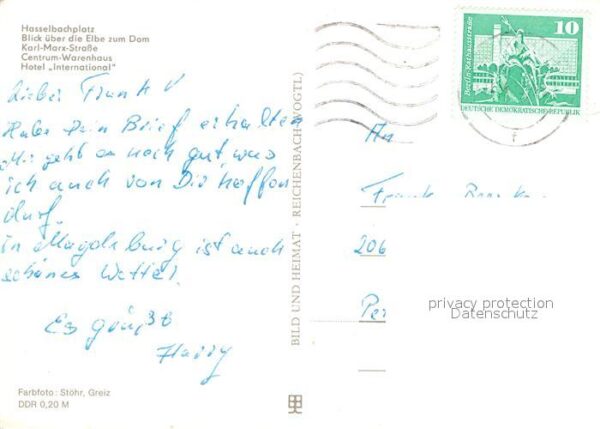 Hasselbachplatz
Blick über die Elbe zum Dom
Karl-Marx-Straße
Centrum-Warenhaus
Hotel „International"
Lieber Frank!
Habe Dein Brief erhalten
Mir geht es noch gut, was
ich auch von Dir hoffen
darf.
in Magdeburg ist auch
schönes Wetter.
Es grüßt
Harry
Farbfoto: Stöhr, Greiz
DDR 0,20 M
BILD UND HEIMAT · REICHENBACH (VOGTL)
10
Berlin-Rathausstraße
DEUTSCHE DEMOKRATISCHE REPUBLIK
An
Frank
206
privacy protection
Datenschutz